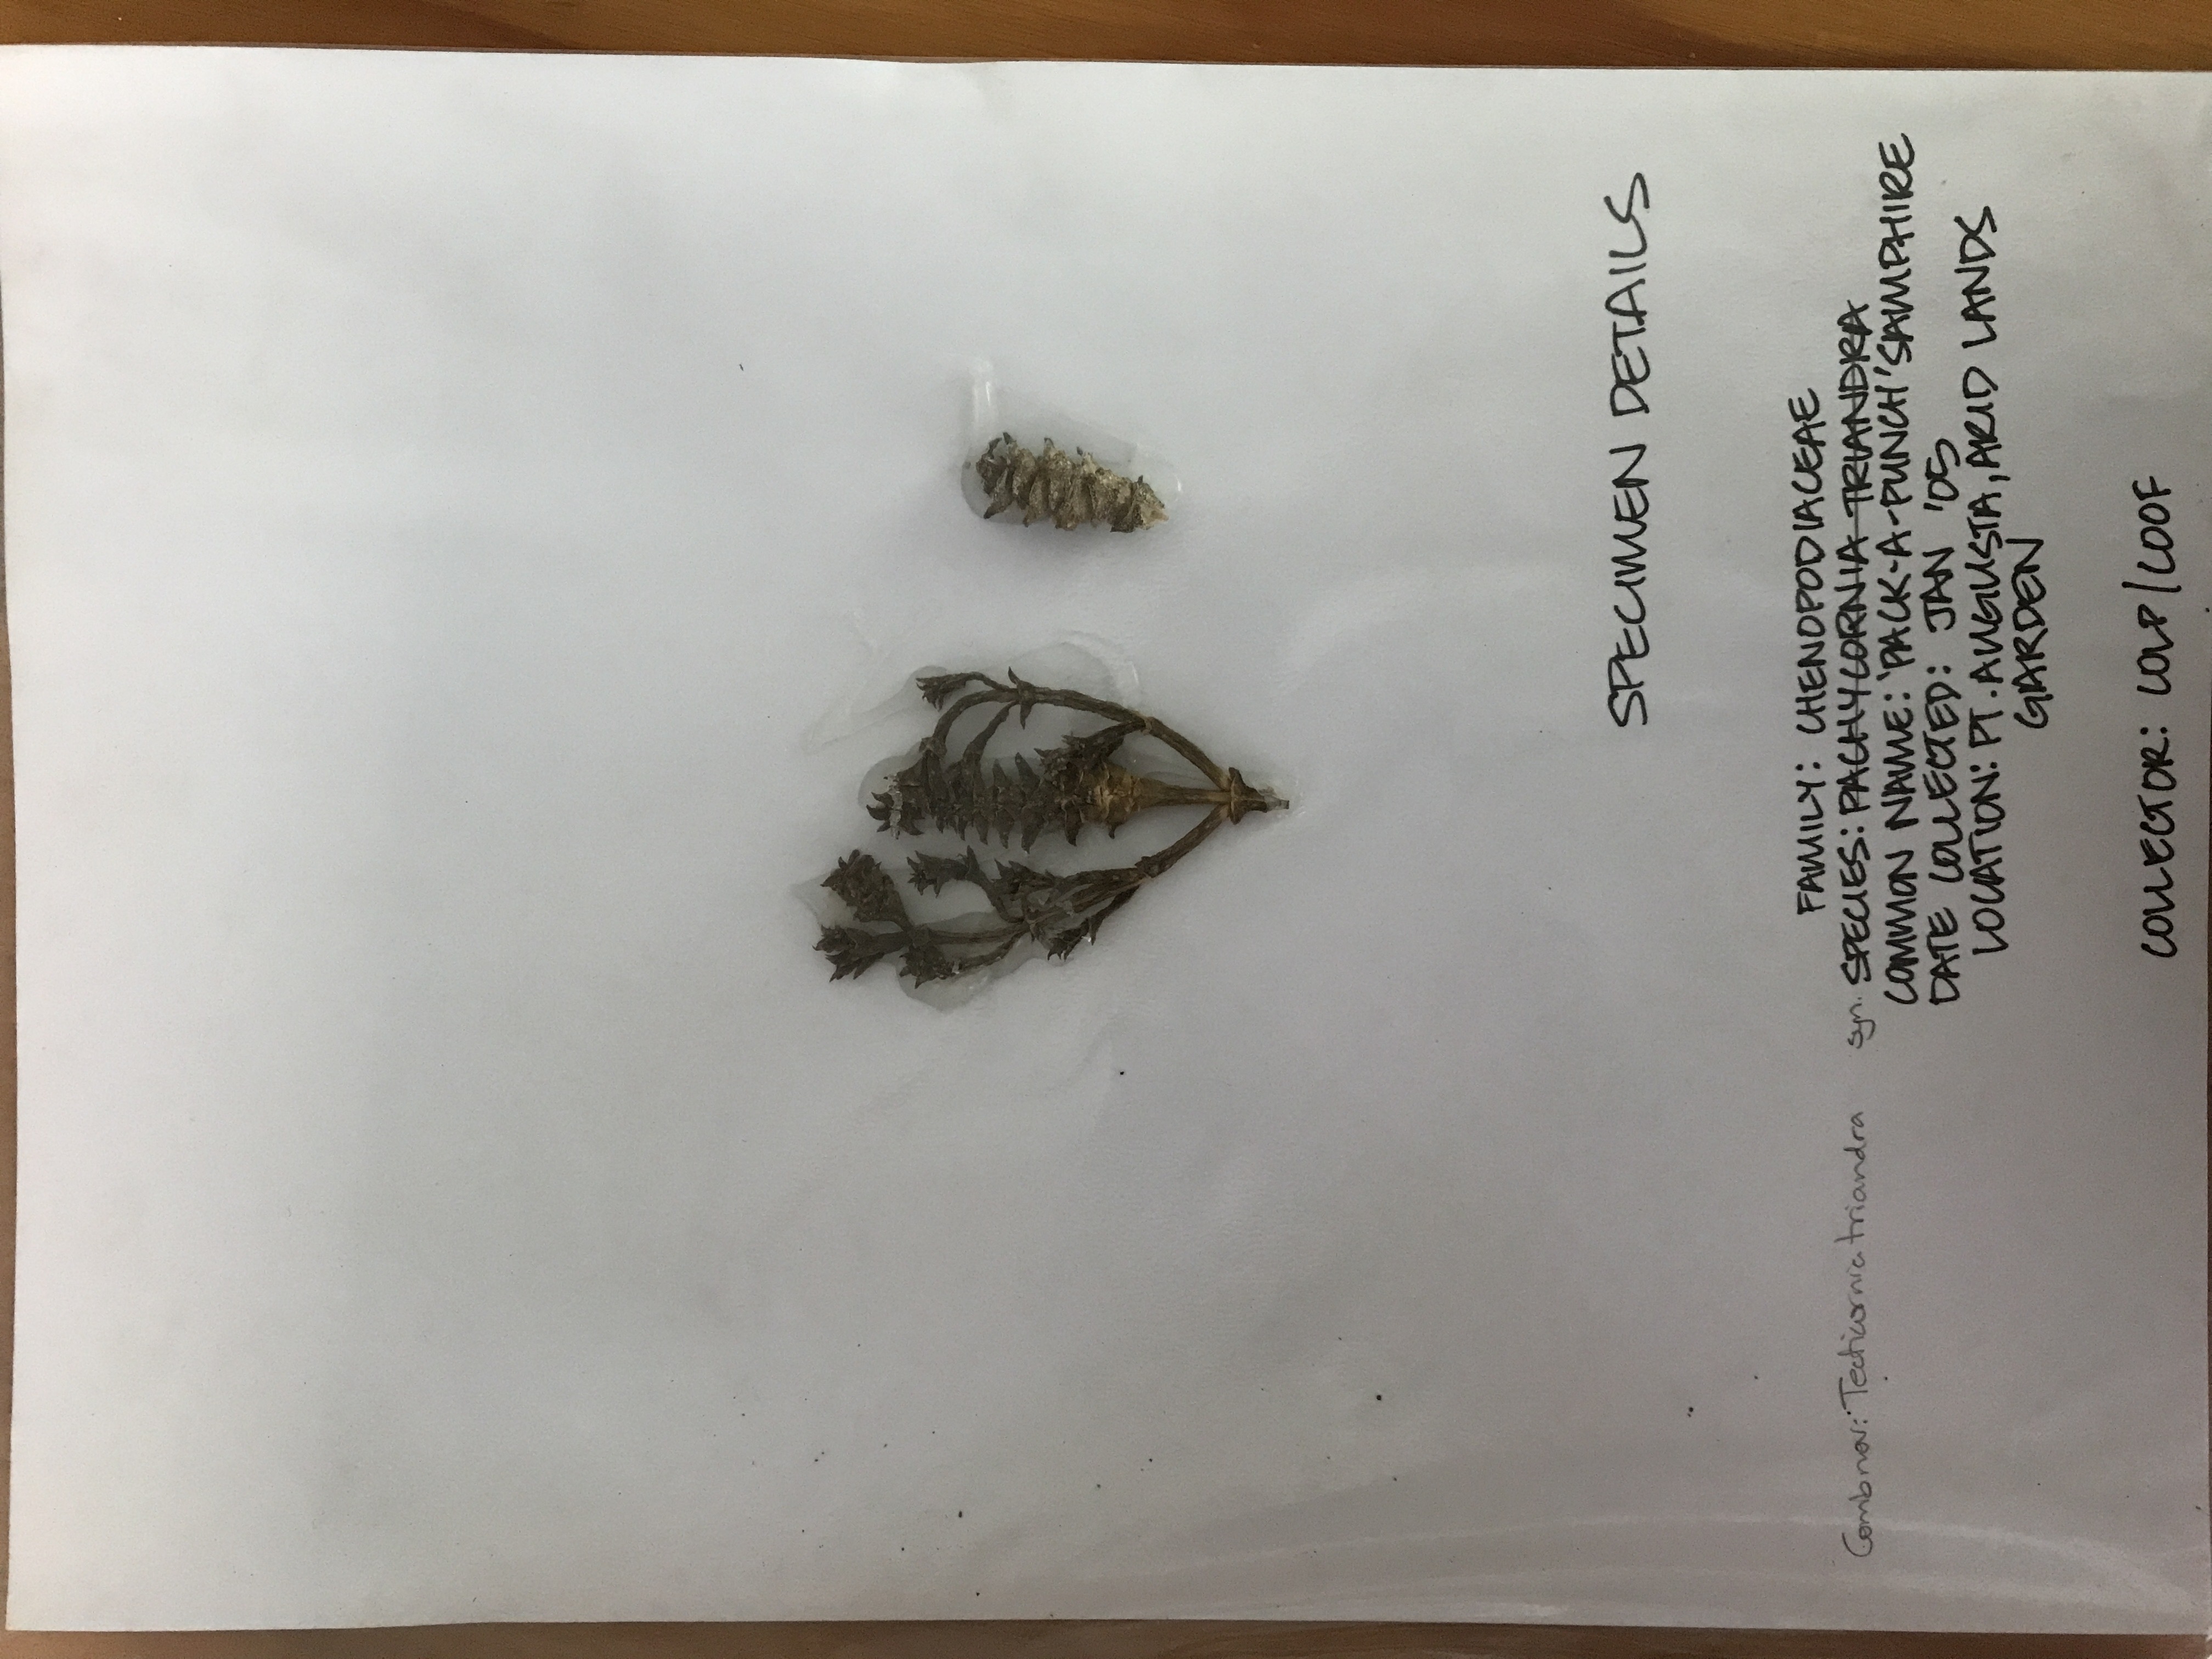 SPECIMEN DETAILS
FAMILY: CHENOPODIACEAE
Comb nov: Tecticornia triandra syn. SPECIES: PACHYCORNIA TRIANDRA
COMMON NAME: 'PACK-A-PUNCH' SAMPHIRE
DATE COLLECTED: JAN '05
LOCATION: PT. AUGUSTA, ARID LANDS
GARDEN
COLLECTOR: COLP/COOF